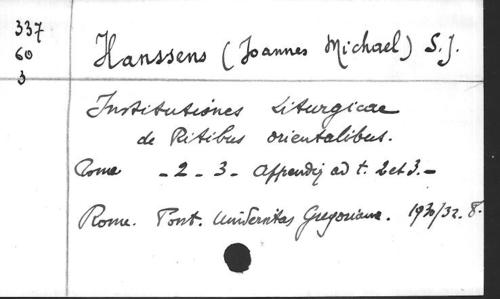 337
60
3
Hanssens (Joannes Michael) S.J.
Institutiones Liturgicae
de Ritibus orientalibus.
Tome - 2 - 3 - Appendix ad t. 2 et 3. -
Rome. Pont. Universitas Gregoriana. 1930/32. 8.